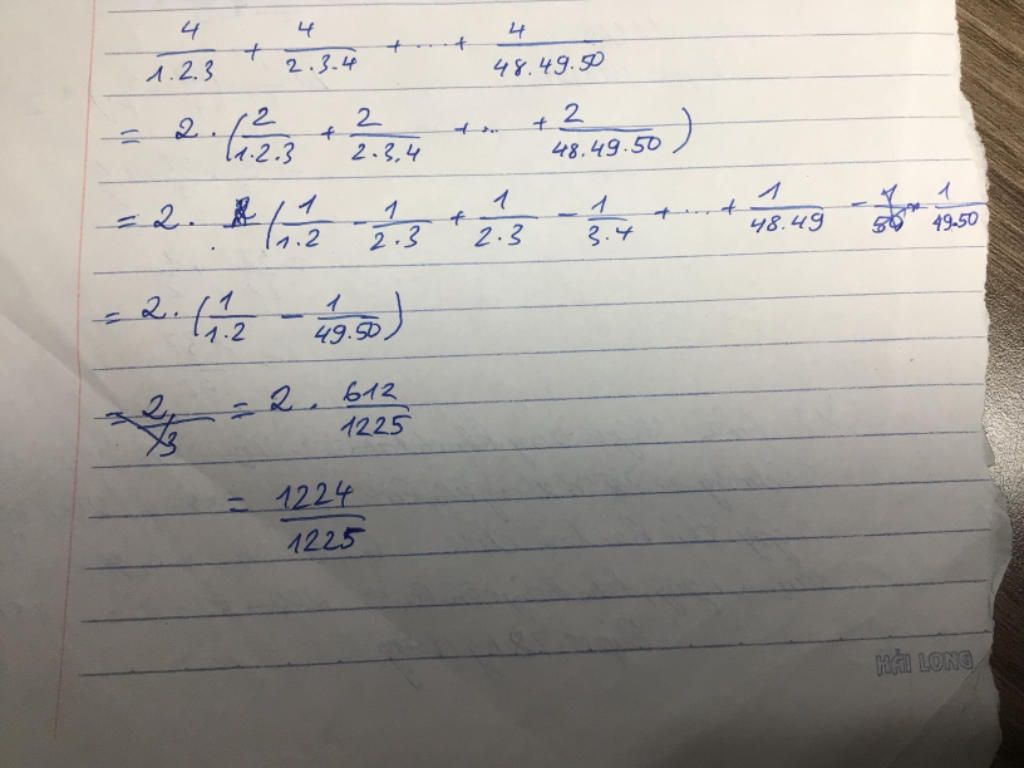 4/1.2.3 + 4/2.3.4 + ... + 4/48.49.50
= 2 . (2/1.2.3 + 2/2.3.4 + ... + 2/48.49.50)
= 2 . (1/1.2 - 1/2.3 + 1/2.3 - 1/3.4 + ... + 1/48.49 - 1/50 - 1/49.50
= 2 . (1/1.2 - 1/49.50)
= 2/3 = 2 . 612/1225
= 1224/1225
HẢI LONG